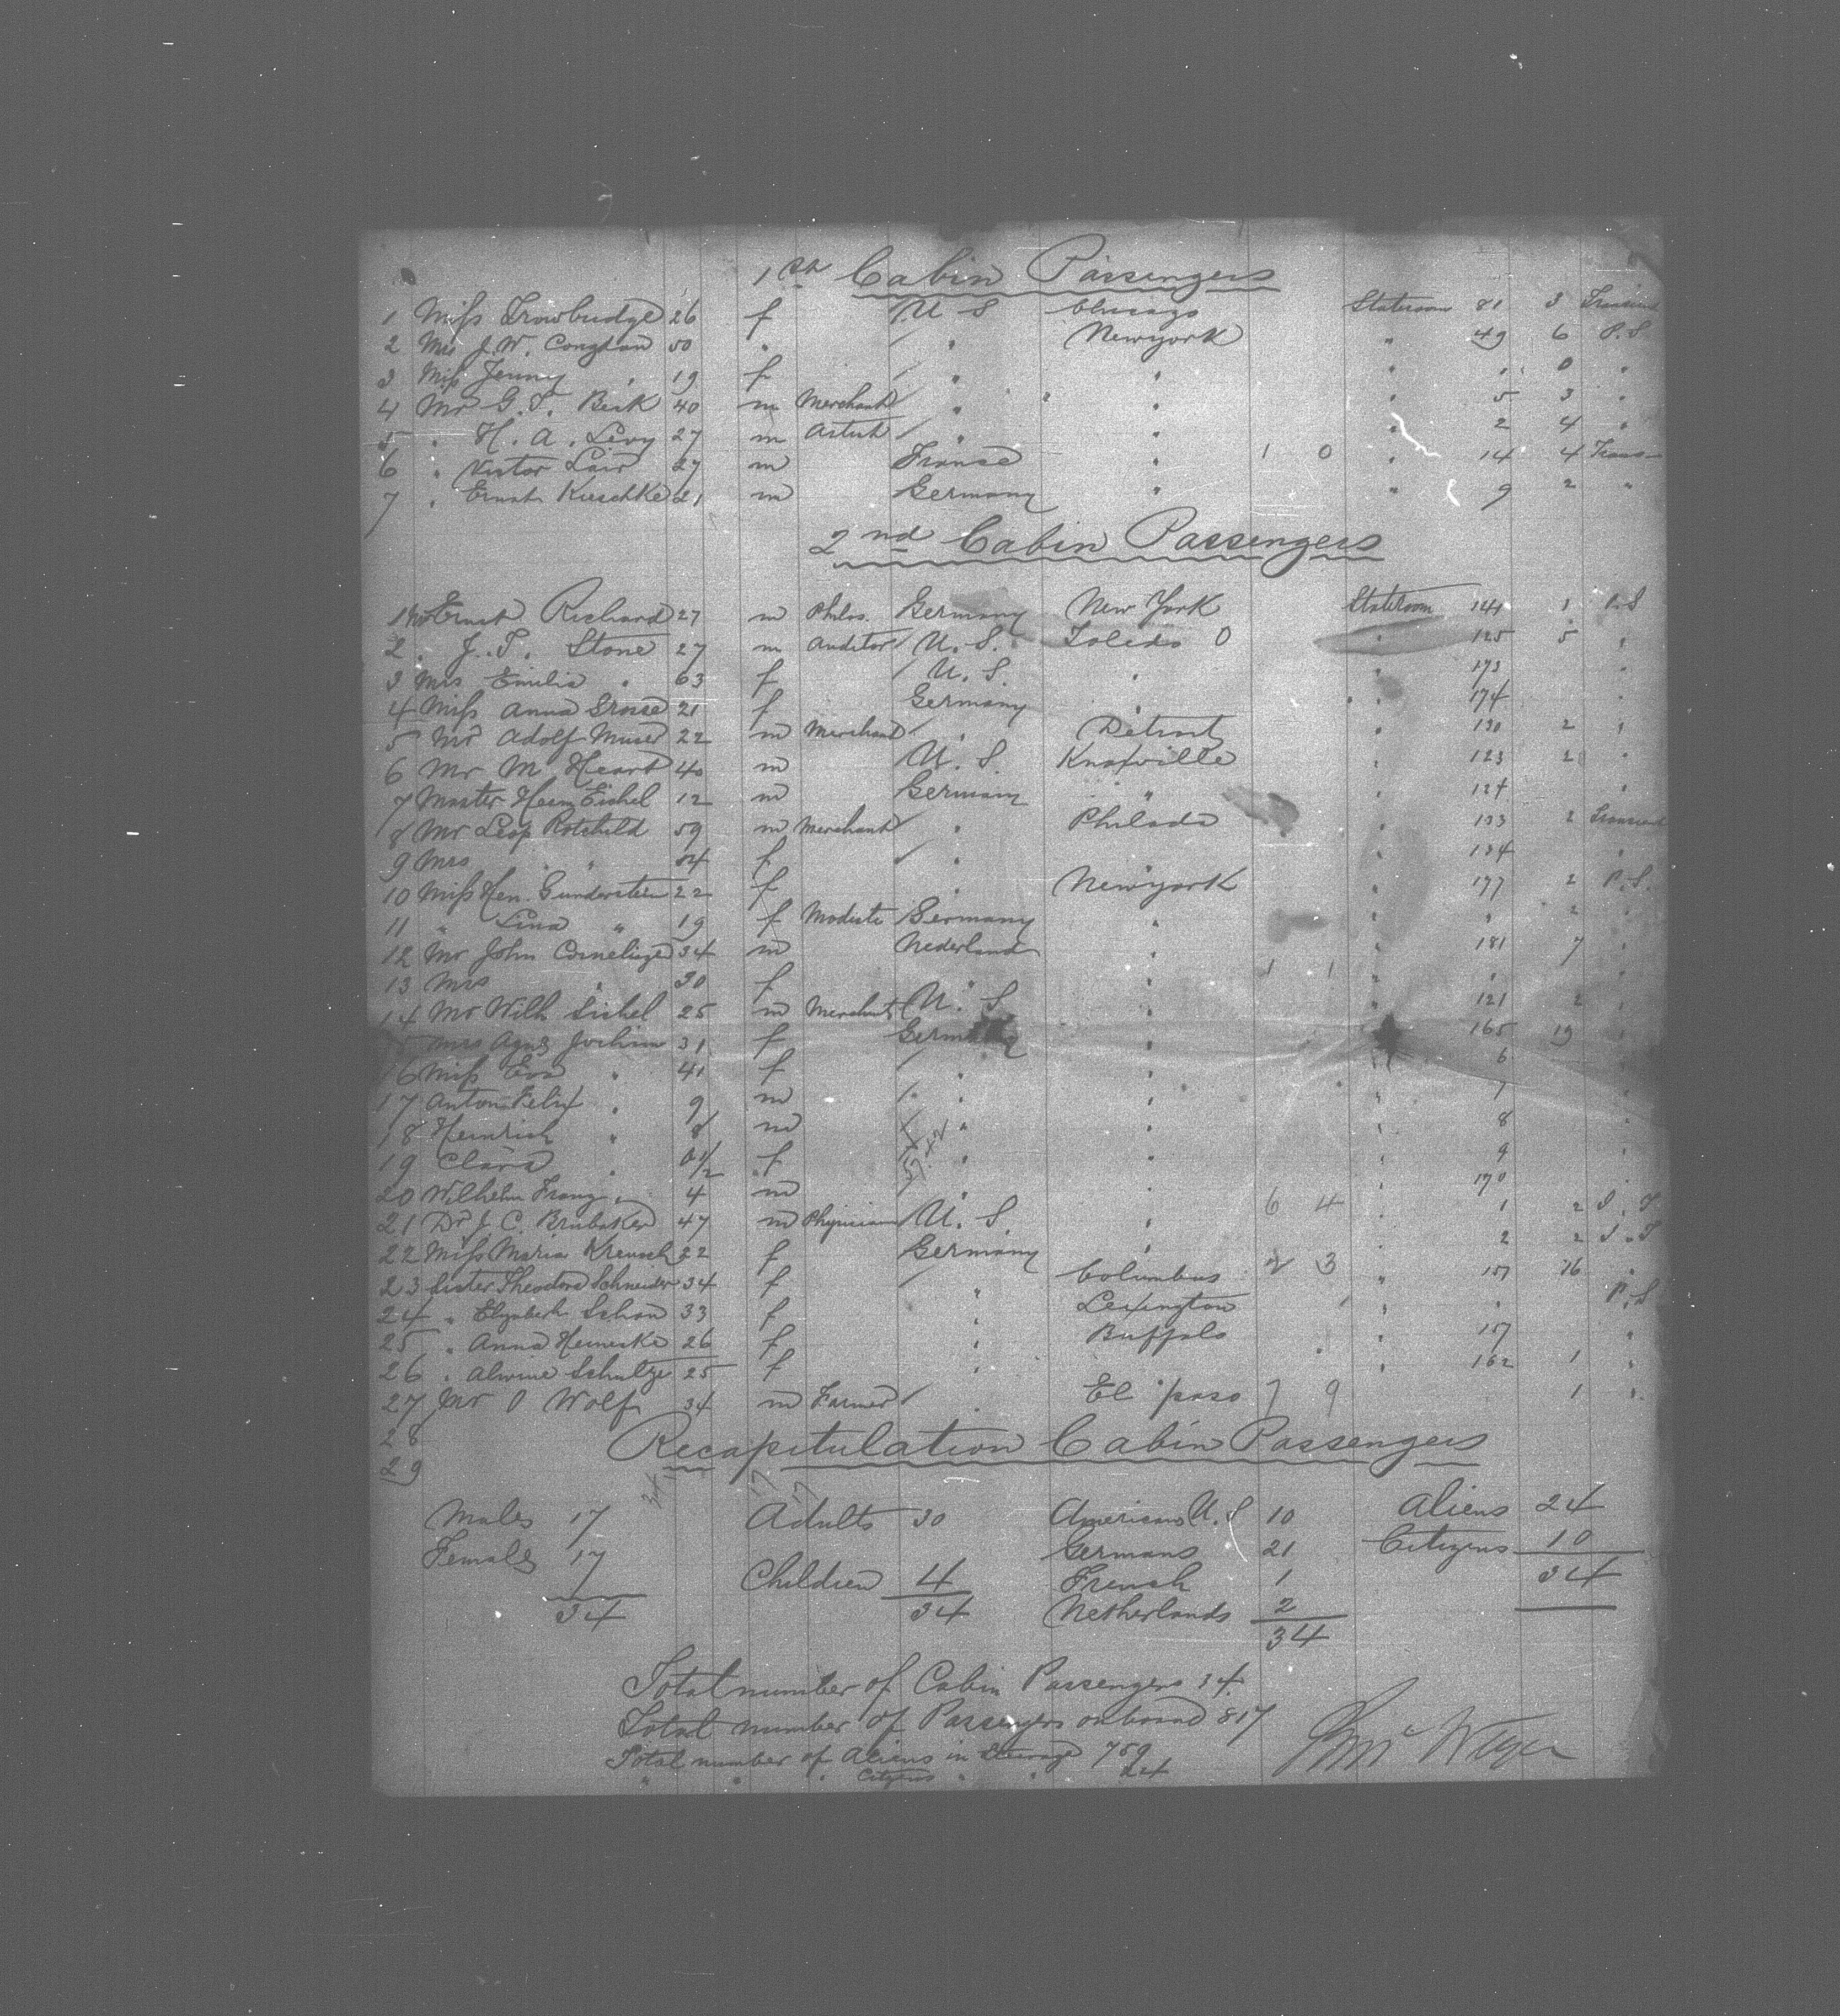 1st Cabin Passengers
1 Miss Trowbridge 26 f U S Chicago Stateroom 81 3 Transient
2 Mrs J. W. 50 " / " Newyork " 49 6 P. S
3 Miss Jenny " 19 f / " " " " 0 "
4 Mr G. T. 40 m Merchant / " " " 5 3 "
5 " H. A. Levy 27 m Artist / " " " 2 4 "
6 " Victor 27 m France " 1 0 " 14 4 Trans
7 " Ernst 21 m Germany " " 9 2 "
2nd Cabin Passengers
1 Mr Ernst Richard 27 m Philos. Germany New York Stateroom 141 1 P. S
2 " J. T. Stone 27 m Auditor / U. S. Toledo 0 " 125 5 "
3 Mrs Emilie " 63 f U. S. " 173 "
4 Miss Anna 21 f Germany " " 174 "
5 Mr Adolf 22 m Merchant / " Detroit " 130 2 "
6 Mr M. Heart 40 m U. S. Knoxville " 123 2 "
7 Master Herm 12 m Germany " " 124 "
8 Mr Leop Rotchild 59 m Merchant / " Philada " 133 2 Transient
9 Mrs " " 54 f / " " 134 "
10 Miss Hen. Gunderstein 22 f " Newyork " 177 2 P. S.
11 " Lina " 19 f Modiste Germany " " " 2 "
12 Mr John 34 m Nederland " " 181 7 "
13 Mrs " 30 f " " 1 1 " " "
14 Mr Wilh Sichel 25 m Merchant / U. S " " 121 2 "
15 Mrs Agnes Jochim 31 f Germany " " 165 19 "
16 Miss Eva " f / " " " 6 "
17 Anton Felix " 9 m / " " " 7 "
18 Heinrich " 8 m / " " " 8 "
19 Clara " f " " " 9 "
20 Wilhelm Franz " 4 m " " 6 4 " 170
21 Dr J. C. Brubaker 47 m Physician / U. S. " " 1 2 S. S
22 Miss Maria Kreusch 22 f Germany " " 2 2 S. S
23 Sister Theodora Schneider 34 f / " Columbus 2 3 " 157 16 "
24 " Elizabeth Schon 33 f " Lexington " " P. S
25 " Anna 26 f " Buffalo " 157 "
26 " Alwine Schultze 25 f " " 162 1 "
27 Mr O Wolf 34 m Farmer / " El paso 7 9 1 "
28
29
Recapitulation Cabin Passengers
Males 17 Adults 30 Americans U. S 10 Aliens 24
Females 17 Germans 21 Citizens 10
Children 4 French 1 34
34 34 Netherlands 2
34
Total number of Cabin Passengers 34
Total number of Passengers on board 817
Total number of Aliens in Steerage 759
" " " Citizens " " 24